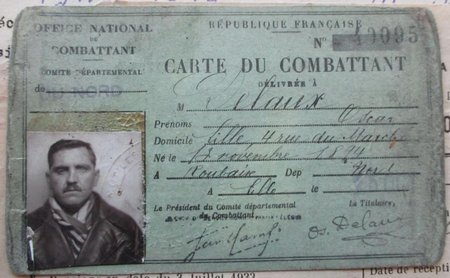 OFFICE NATIONAL
DU
COMBATTANT
COMITÉ DÉPARTEMENTAL
du NORD
RÉPUBLIQUE FRANÇAISE
N° 49095
CARTE DU COMBATTANT
DÉLIVRÉE À
M Delaux
Prénoms Oscar
Domicile Lille, 4 rue du Marché
Né le novembre
à Roubaix Dép Nord
A Lille le
Le Président du Comité départemental
du Combattant,
Le Titulaire,
Os. Delaux